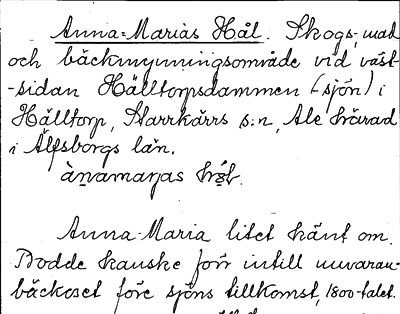 Anna=Marias Hål. Skogs, mad
och bäckmynningsområde vid väst-
-sidan Hälltorpsdammen (-sjön) i
Hälltorp, Starrkärrs s:n, Ale härad
i Älfsborgs län.
ànamarjas
Anna-Maria litet känt om.
Bodde kanske förr intill nuvaran-
bäckoset före sjöns tillkomst, 1800-talet.